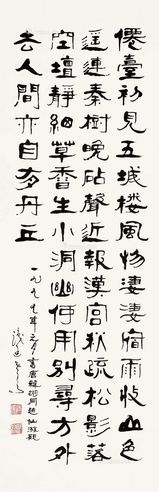 僊臺初見五城楼風物淒淒宿雨收山色
遥連秦樹晚砧聲近報漢宮秋疏松影落
空壇靜細草香生小洞幽何用別尋方外
去人間亦自有丹丘
一九九七年元月書唐韓翃同題仙游觀